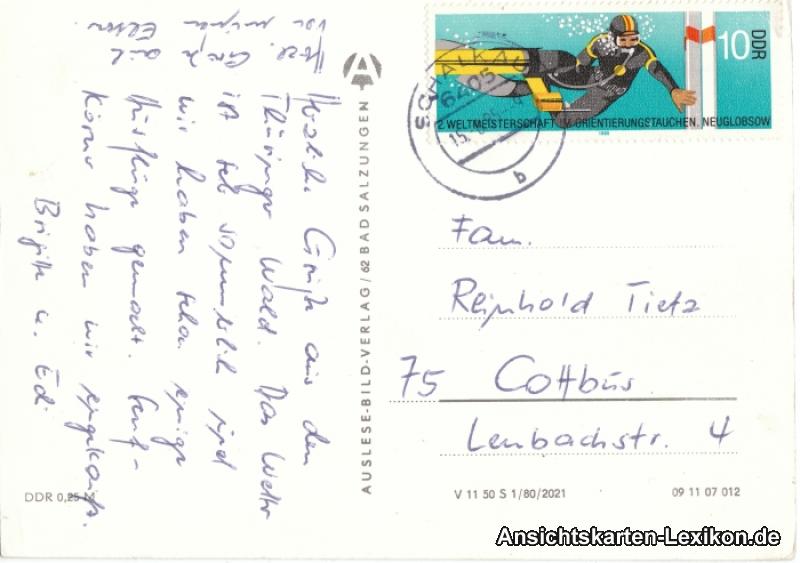 Herzliche Grüße aus dem
Thüringer Wald. Das Wetter
ist sehr sommerlich und
wir haben schon einige
Ausflüge gemacht. Senf-
Körner haben wir eingekauft.
Brigitte u. Edi
Herzl. Grüße
von meinen Eltern
DDR 0,25 M
AUSLESE-BILD-VERLAG / 62 BAD SALZUNGEN
SCHALKAU
6405
15.
b
10 DDR
2. WELTMEISTERSCHAFT IM ORIENTIERUNGSTAUCHEN, NEUGLOBSOW
1985
Fam.
Reinhold Tietz
75 Cottbus
Lenbachstr. 4
V 11 50 S 1/80/2021
09 11 07 012
Ansichtskarten-Lexikon.de